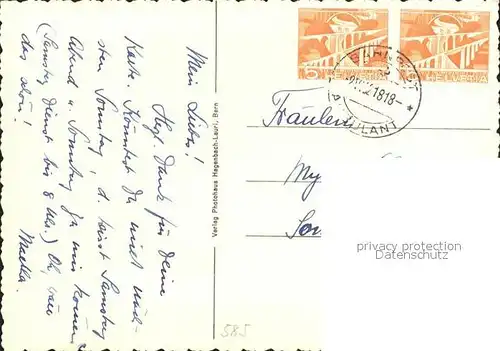 Mein Liebes!
Hzl. Dank für Deine
Karte. Könntest Du nicht näch-
sten Sonntag, d. heisst Samstag
Abend u. Sonntag zu mir kommen
(Samstag Dienst bis 8 Uhr.) Oh, wär
das schön!
Verlag Photohaus Hagenbach-Laur, Bern
5 HELVETIA
HELVETIA
AMBULANT
Fräulein
My
privacy protection
Datenschutz
585